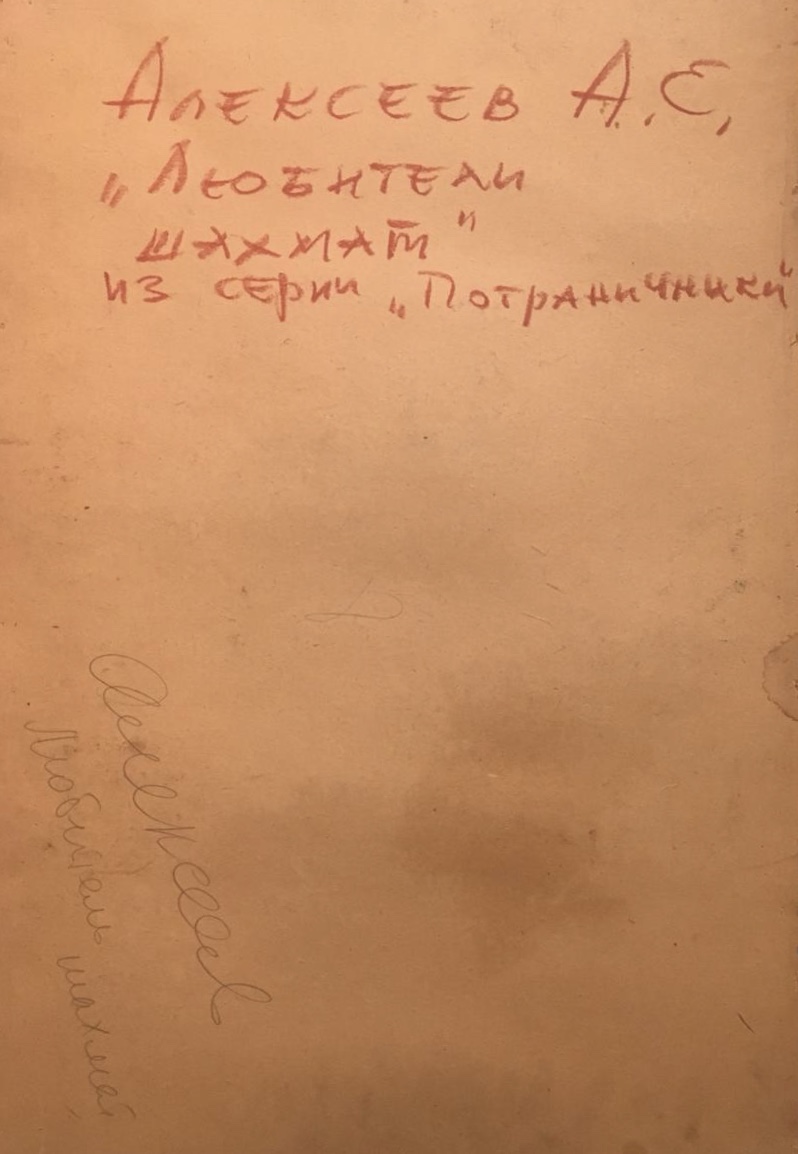 Алексеев А.Е.
„Любители
шахмат"
из серии „Пограничники"
Алексеев
Любитель шахмат